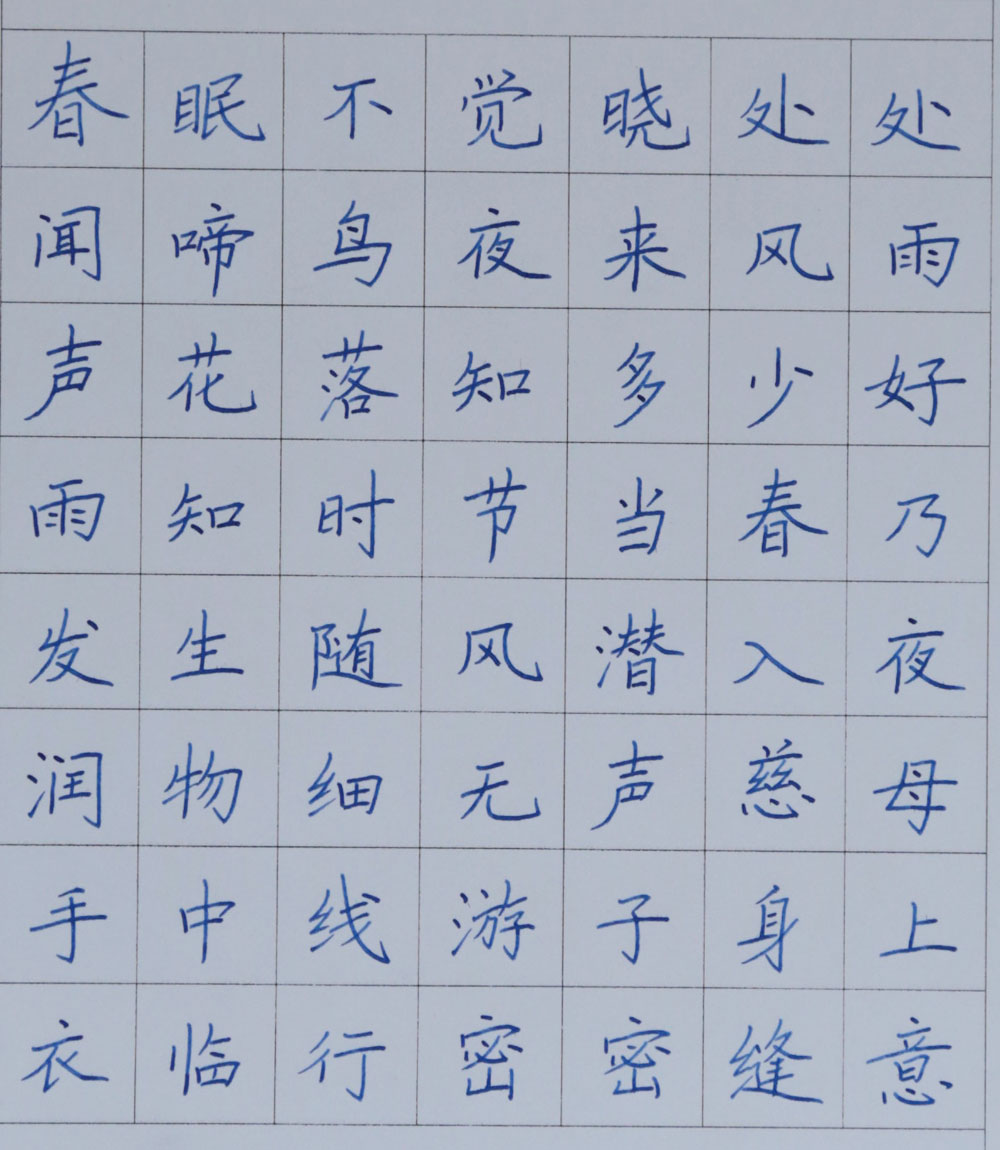 春眠不觉晓处处
闻啼鸟夜来风雨
声花落知多少好
雨知时节当春乃
发生随风潜入夜
润物细无声慈母
手中线游子身上
衣临行密密缝意